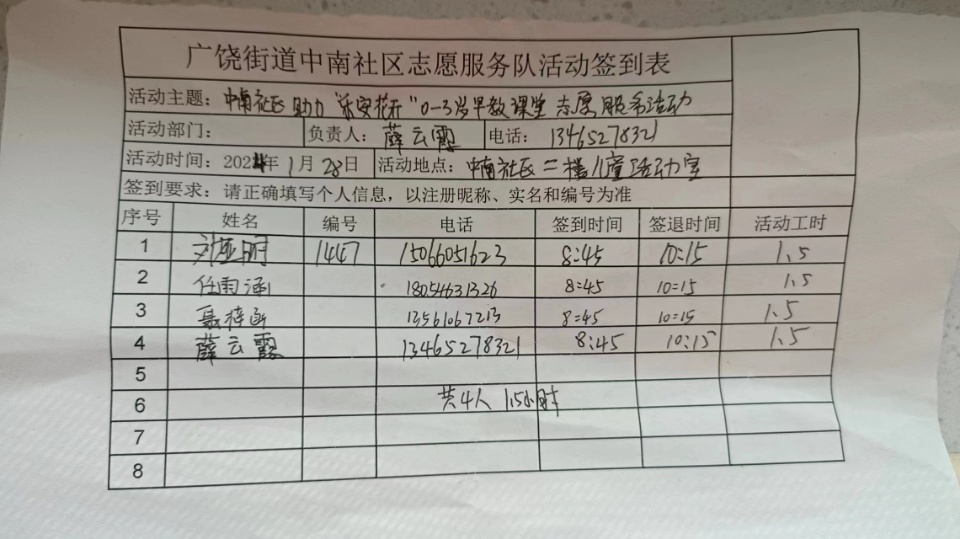 广饶街道中南社区志愿服务队活动签到表
活动主题：中南社区助力"乐安花开"0-3岁早教课堂志愿服务活动
活动部门： 负责人：薛云霞 电话：13465278321
活动时间：2024年1月28日 活动地点：中南社区二楼儿童活动室
签到要求：请正确填写个人信息，以注册昵称、实名和编号为准
序号 姓名 编号 电话 签到时间 签退时间 活动工时
1 刘亚明 1447 15066051623 8:45 10:15 1.5
2 任雨涵 18054631326 8=45 10=15 1.5
3 聂梓函 13561067213 8=45 10=15 1.5
4 薛云霞 13465278321 8:45 10:15 1.5
5
6 共4人 1.5小时
7
8